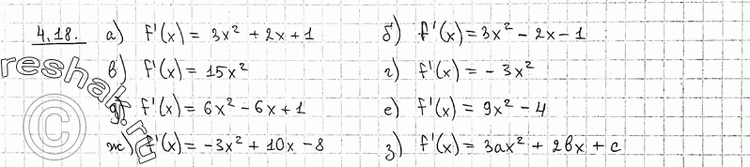 4.18. а) f'(x) = 3x² + 2x + 1 б) f'(x) = 3x² - 2x - 1
в) f'(x) = 15x² г) f'(x) = - 3x²
д) f'(x) = 6x² - 6x + 1 е) f'(x) = 9x² - 4
ж) f'(x) = -3x² + 10x - 8 з) f'(x) = 3ax² + 2bx + c
reshak.ru
©